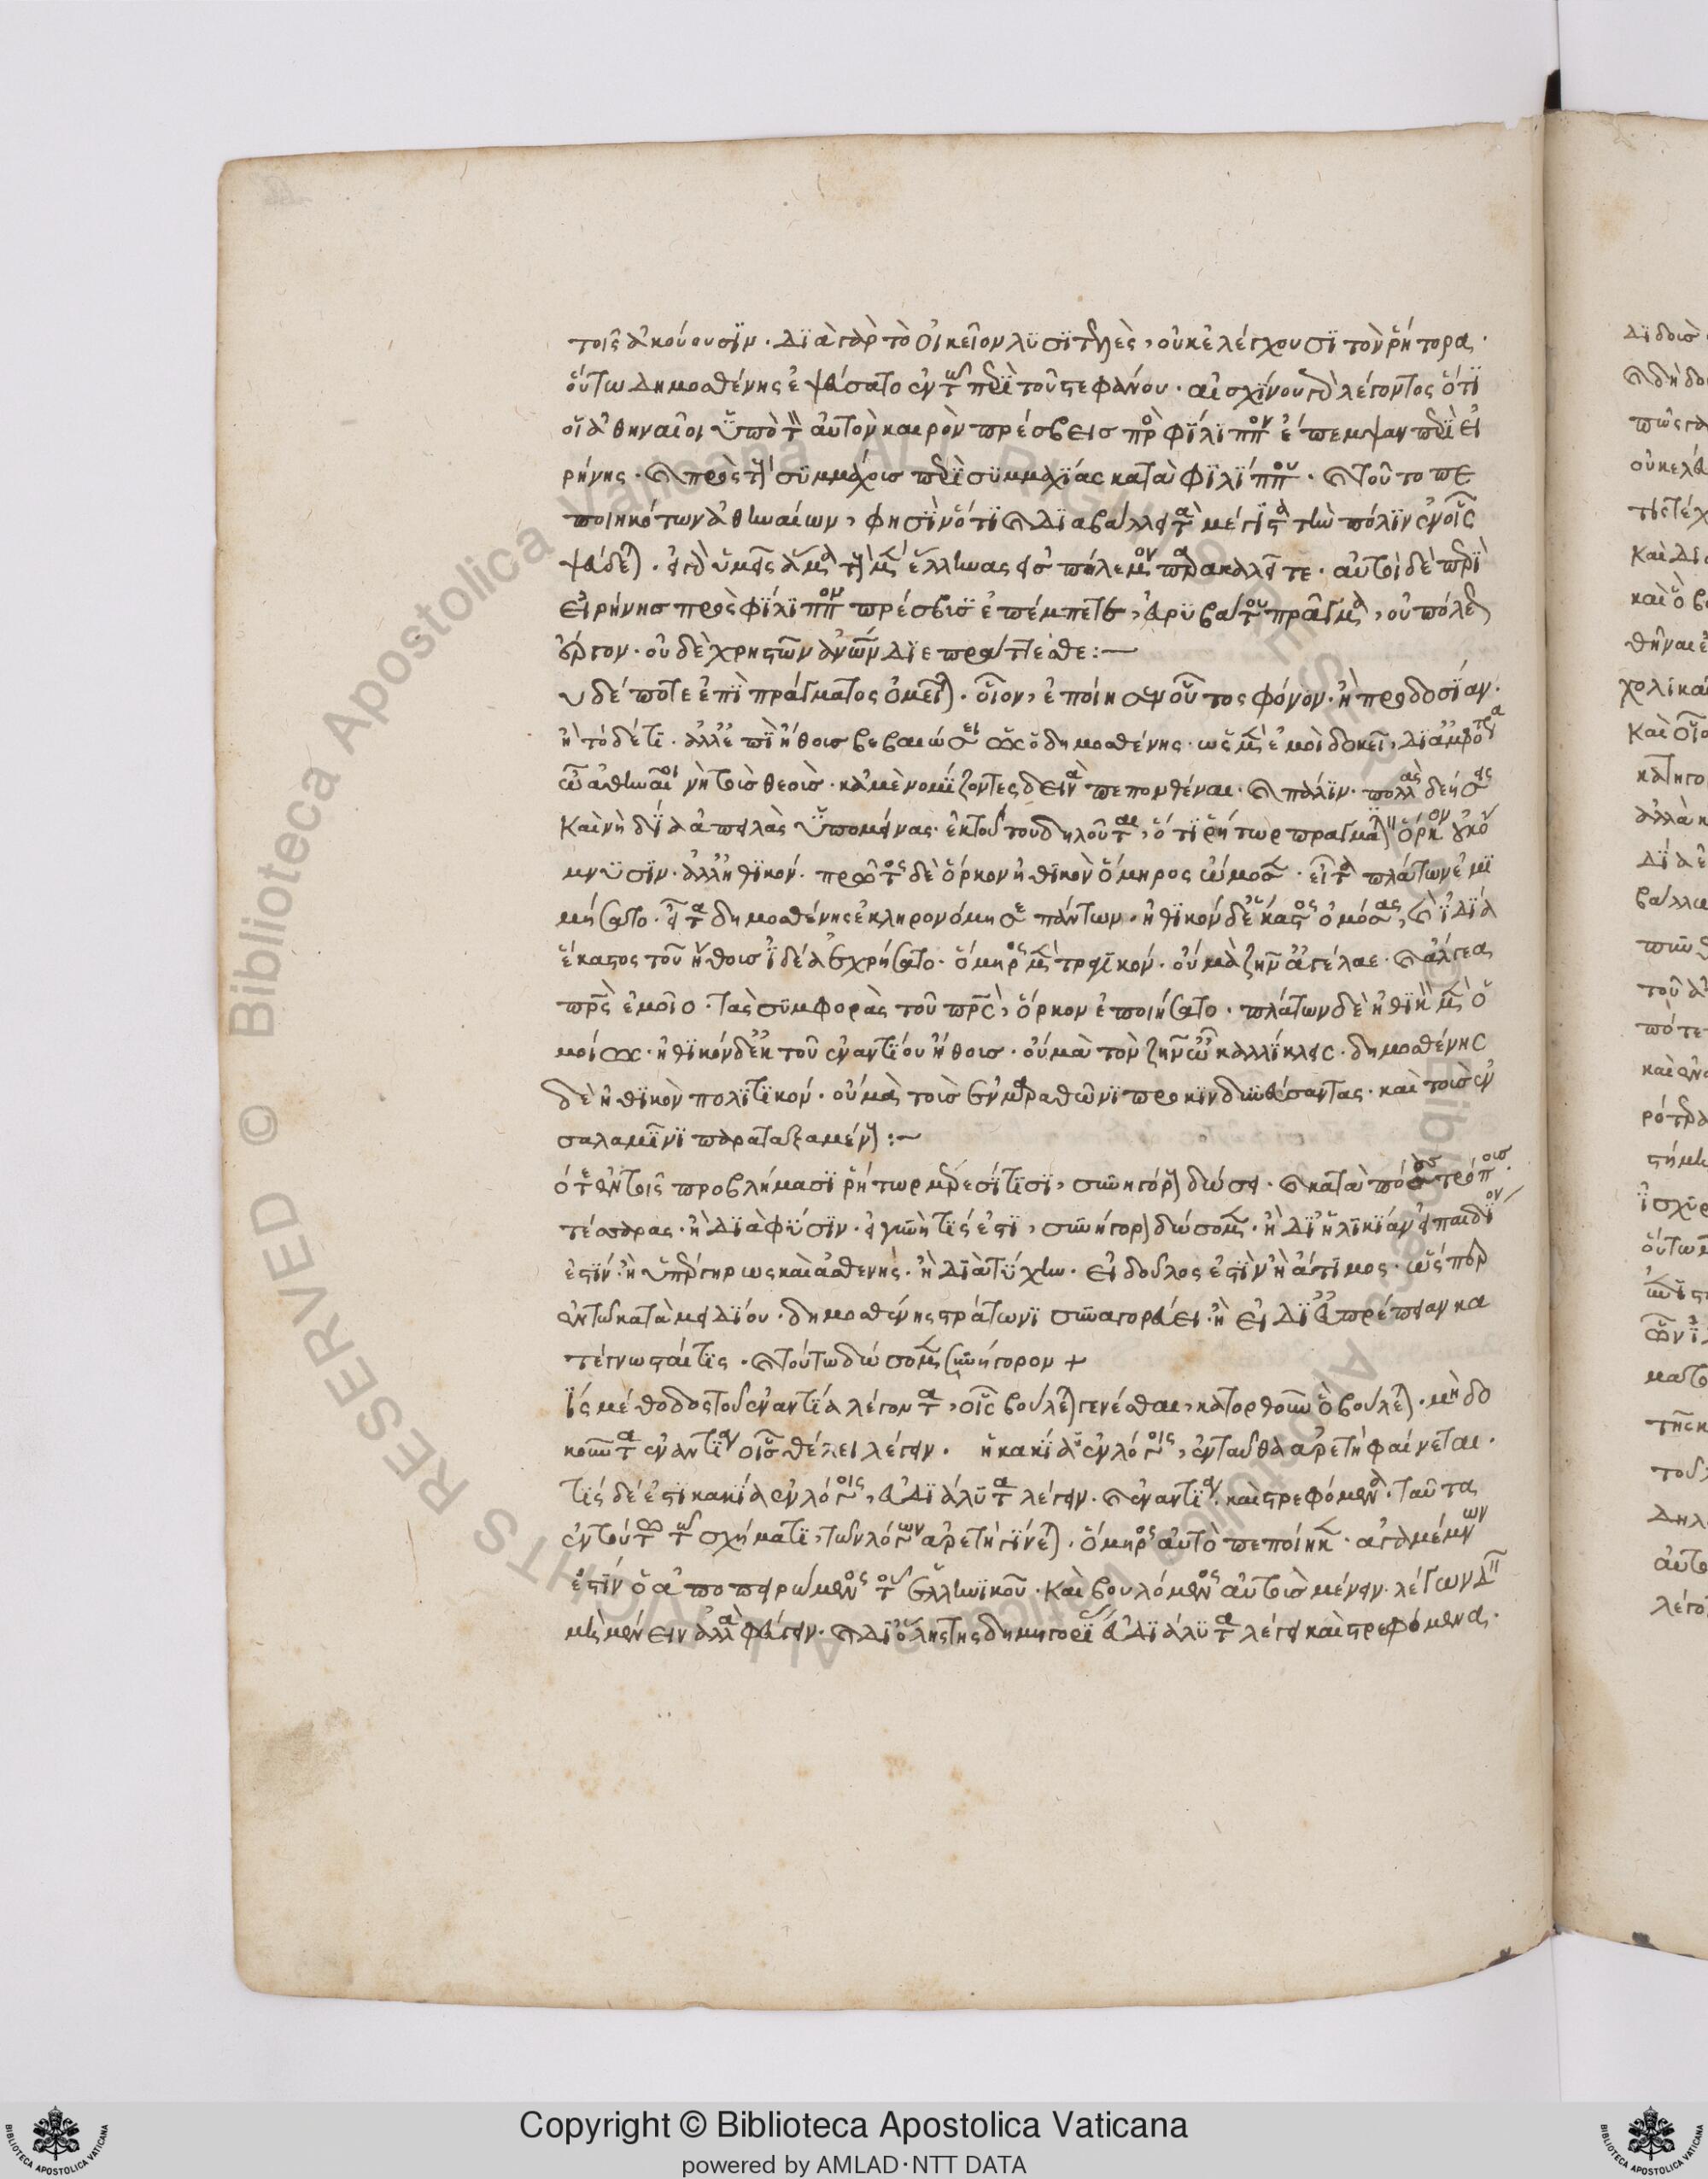 τοῖς ἀκούουσιν. διὰ γὰρ τὸ οἰκεῖον λυσιτελὲς, οὐκ ἐλέγχουσι τὸν ῥήτορα.
οὕτω Δημοσθένης ἐψεύσατο ἐν τῷ περὶ τοῦ στεφάνου. αἰσχίνου γὰρ λέγοντος ὅτι
οἱ ἀθηναῖοι ὑπὸ τὸν αὐτὸν καιρὸν πρέσβεις πρὸς φίλιππον ἔπεμψαν περὶ εἰ
ρήνης. καὶ πρὸς τοὺς συμμάχους περὶ συμμαχίας κατὰ φιλίππου. καὶ τοῦτο πε
ποιηκότων ἀθηναίων, φησὶν ὅτι καὶ διαβάλλει τὰ μέγιστα τὴν πόλιν ἐν οἷς
ψεύδεται. εἰ γὰρ ὑμεῖς ἅμα τοὺς μὲν ἕλληνας εἰς πόλεμον παρακαλεῖτε. αὐτοὶ δὲ περὶ
εἰρήνης πρὸς φίλιππον πρέσβεις ἐπέμπετε, εὐρυβάτου πρᾶγμα, οὐ πόλεως
ἔργον. οὐδὲ χρηστῶν ἀνθρώπων διεπράττεσθε:
υδέποτε ἐπὶ πράγματος ὀμεῖται. οἷον, ἐποίησεν οὗτος φόνον. ἢ προδοσίαν.
ἢ τόδε τι. ἀλλ' ἐπὶ ἤθους βεβαιώσει ὡς ὁ δημοσθένης. ὡς μὲν ἐμοὶ δοκεῖ, δι' ἀμφότερα
ὦ ἀθηναῖοι νὴ τοὺς θεοὺς. καὶ μὲ νομίζοντες δεινὰ πεπονθέναι. καὶ πάλιν. πολλὰς δεήσεις
καὶ νὴ δία ἀπειλὰς ὑπομείνας. ἐκ τούτου δηλοῦται, ὅτι ῥήτωρ πραγματικὸν ὅρκον οὐκ ὄ
μνυσιν. ἀλλ' ἠθικόν. πρῶτος δὲ ὅρκον ἠθικὸν ὅμηρος ὤμοσεν. εἶτα πλάτων ἐμι
μήσατο. εἶτα δημοσθένης ἐκληρονόμησε πάντων. ἠθικόν δὲ ἕκαστος ὀμόσας, καὶ ἰδίᾳ
ἕκαστος τοῦ ἤθους ἰδέᾳ ἐχρήσατο. ὅμηρος μὲν τραγικόν. οὐ μὰ ζῆν' ἀγέλαε. καὶ ἄλγεα
πατρὸς ἐμοῖο. τὰς συμφορὰς τοῦ πατρὸς, ὅρκον ἐποιήσατο. πλάτων δὲ ἠθικὴν μὲν ὁ
μοίως. ἠθικόν δὲ ἐκ τοῦ ἐναντίου ἤθους. οὐ μὰ τὸν ζῆνον ὦ καλλίκλεις. δημοσθένης
δὲ ἠθικὸν πολιτικόν. οὐ μὰ τοὺς ἐν μαραθῶνι προκινδυνεύσαντας. καὶ τοὺς ἐν
σαλαμῖνι παραταξαμένους:
ότε ἐν τοῖς προβλήμασι ῥήτωρ μὲν ἐστί τισι, συνήγορον δώσει. καὶ κατὰ πόσους τρόπους.
τέσσαρας. ἢ διὰ φύσιν. εἰ γυνή τίς ἐστι, συνήγορον δώσομεν. ἢ δι' ἡλικίαν εἰ παιδίον
ἐστίν. ἢ ὑπέργηρως καὶ ἀσθενής. ἢ διὰ τύχην. εἰ δοῦλος ἐστὶν ἢ ἄτιμος. ὥσπερ
ἐν τῷ κατὰ μειδίου. δημοσθένης στράτωνι συναγορεύει. ἢ εἰ δι' εὐπρέπειαν κα
τέγνωσταί τις. καὶ τούτῳ δώσομεν συνήγορον +
ίς μέθοδος τοῦ ἐναντία λέγοντα, οἷς βούλεται γενέσθαι, κατορθοῦν ὃ βούλεται. μὴ δο
κοῦντα ἐναντίαν οἷς θέλει λέγειν. ἡ κακία ἐν λόγοις, ἐνταῦθα ἀρετὴ φαίνεται.
τίς δέ ἐστι κακία ἐν λόγοις, εὐδιάλυτα λέγειν. καὶ ἐναντία. καὶ στρεφόμενα. ταῦτα
ἐν τούτῳ τῷ σχήματι, τῶν λόγων ἀρετὴ γίνεται. ὅμηρος αὐτὸ πεποίηκεν. ἀγαμέμνων
ἐστίν ὁ ἀποπειρώμενος τοῦ ἑλληνικοῦ. καὶ βουλόμενος αὐτοὺς μένειν. λέγων δὲ
μὴ μένειν ἀλλὰ φεύγειν. καὶ δι' ὅλης τῆς δημηγορίας εὐδιάλυτα λέγει καὶ στρεφόμενα.